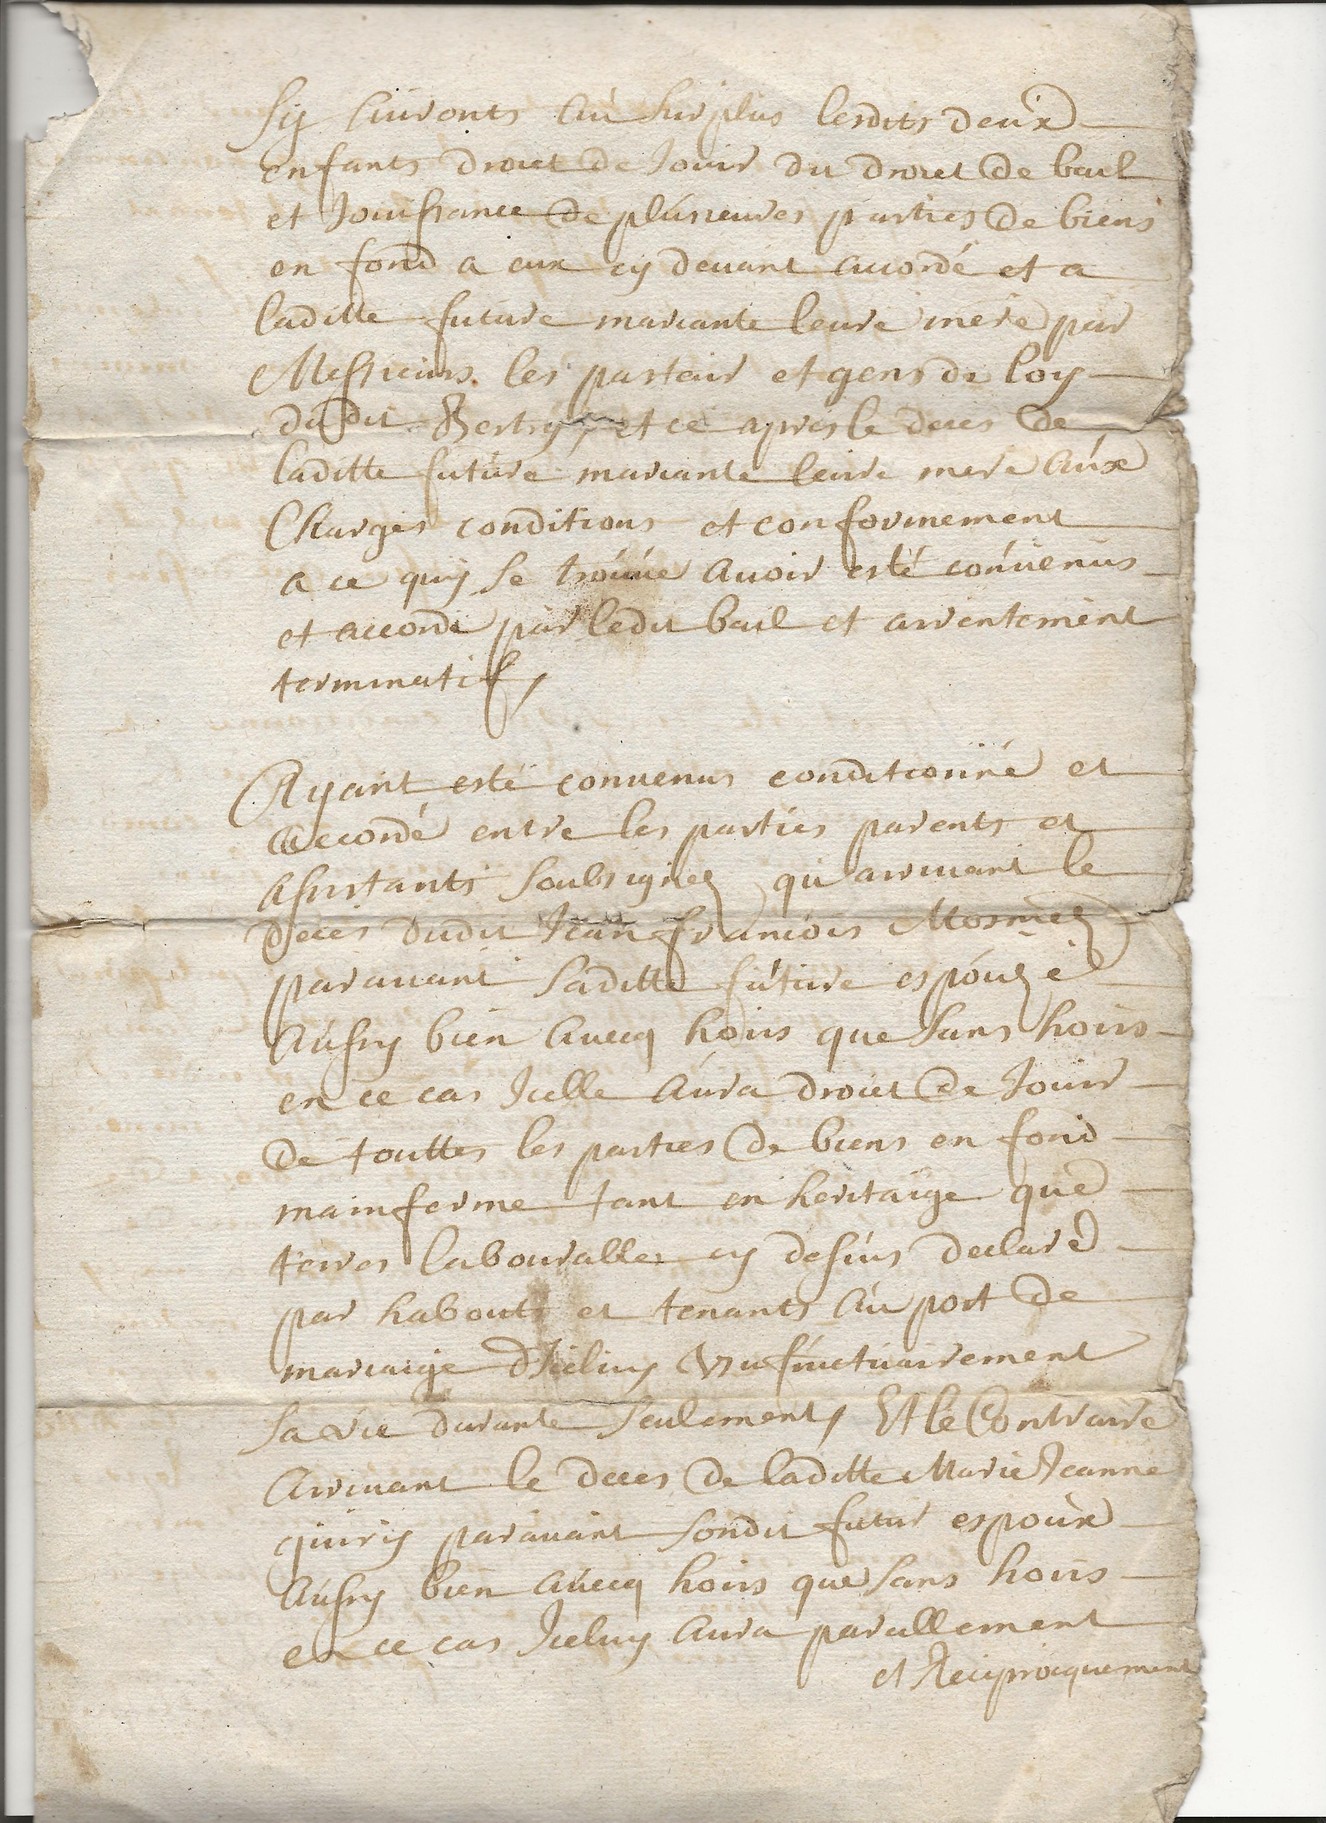 Sy auronts au surplus lesdits deux
enfants droict de Jouir du droict de bail
et Jouissance de plusieures parties de biens
en fond a eux cy devant accordé et a
laditte future mariante leure mere par
Messieurs les pasteur et gens de loy
dudit Bertry, et ce apres le deces de
laditte future mariante leure mere aux
Charges conditions et conformement
a ce quy se trouve avoir esté convenus
et accordé par ledit bail et arrentement
terminatif,
Ayant esté convenus conditionné et
accordé entre les parties parents et
assistants soubsignez qu'arrivant le
deces dudit Jean françois Mosniez
paravant saditte future espouze
aussy bien avecq hoirs que sans hoirs
en ce cas Icelle aura droict de Jouir
de touttes les parties de biens en fond
mainferme tant en heritaige que
terres labourables cy dessus declaré
par habouts et tenants au port de
mariaige d'Iceluy Uzufructuairement
sa vie durante seulement, Et le Contraire
arrivant le deces de laditte Marie Jeanne
quiry paravant sondit futur espoux
aussy bien avecq hoirs que sans hoirs
en ce cas Iceluy aura parallement
et Reciprocquement